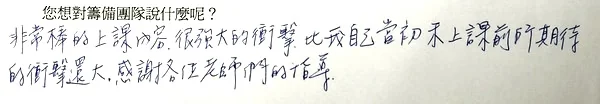 您想對籌備團隊說什麼呢?
非常棒的上課內容.很強大的衝擊 比我自己當初未上課前所期待
的衝擊還大,感謝各位老師們的指導.